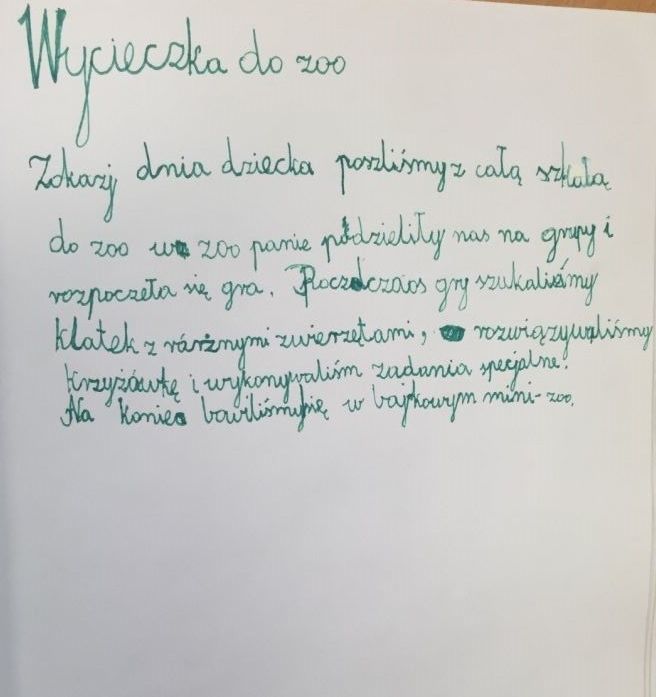 Wycieczka do zoo
Zokazij dnia dziecka poszliśmy z całą szkołą
do zoo w zoo panie podzieliły nas na grupy i
rozpoczeła się gra. Poczdczaos gry szukaliśmy
klatek z rárżnymi zwierzętami, rozwiązywaliśmy
krzyżówkę i wykonywaliśm zadania specjalne.
Na koniec bawiliśmysię w bajkowym mini-zoo.